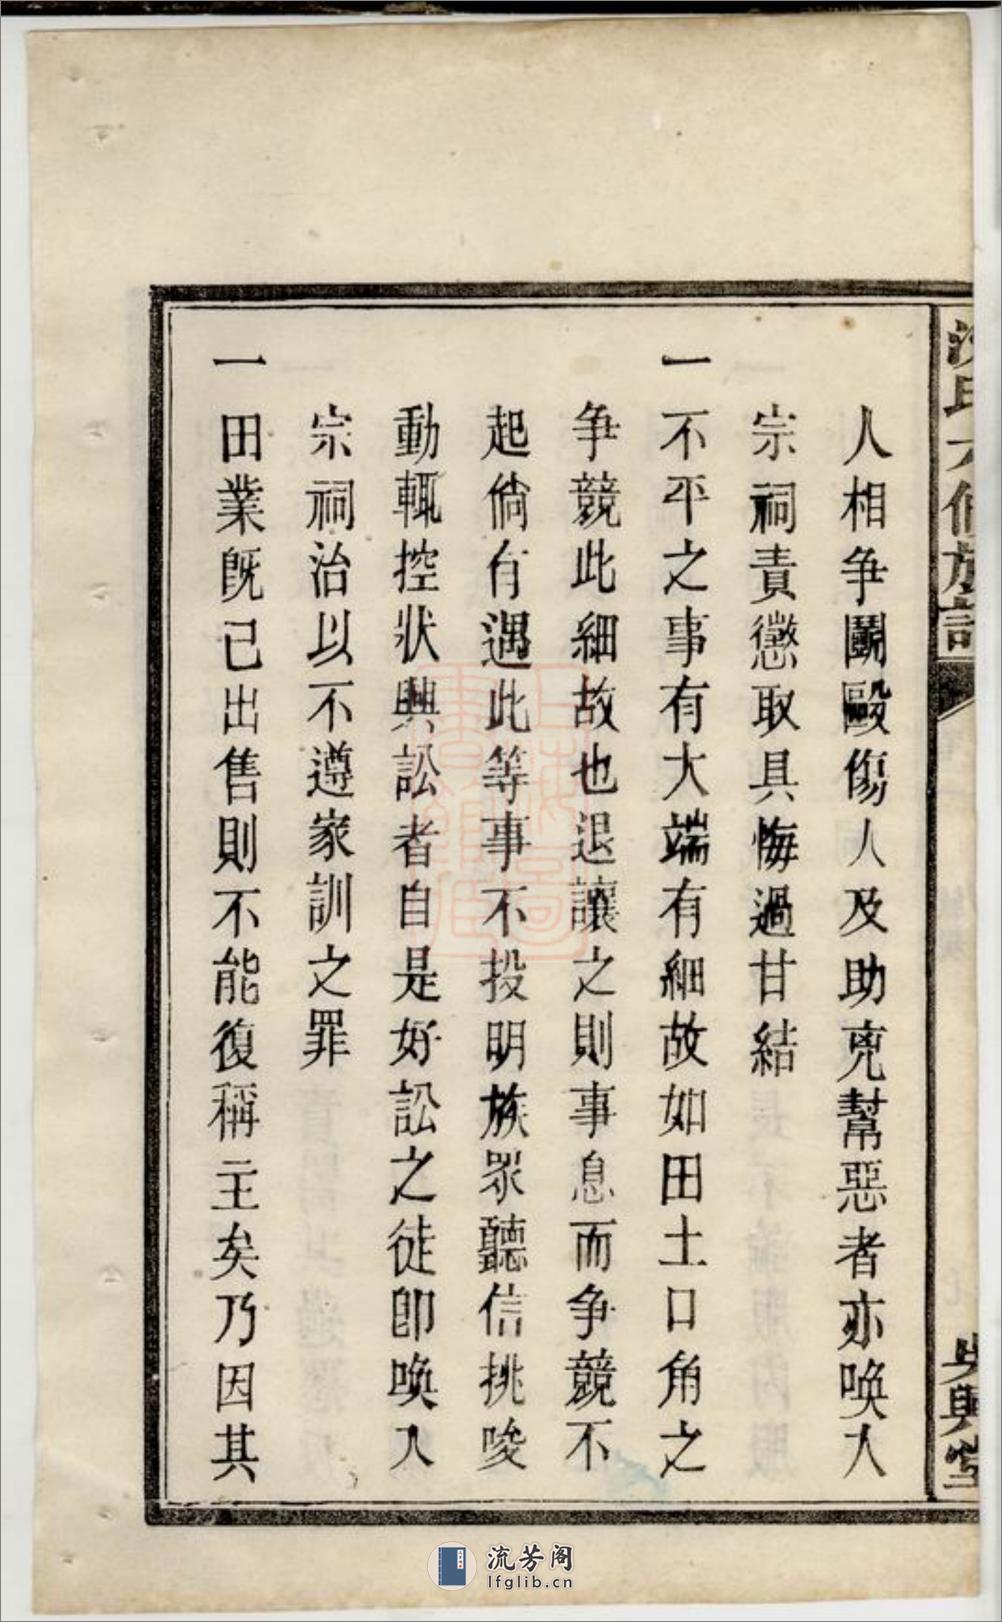 沈氏六修族譜
吳興堂
人相爭鬭毆傷人及助兇幫惡者亦喚入
宗祠責懲取具悔過甘結
一不平之事有大端有細故如田土口角之
爭競此細故也退讓之則事息而爭競不
起倘有遇此等事不投明族眾聽信挑唆
動輒控狀興訟者自是好訟之徒卽喚入
宗祠治以不遵家訓之罪
一田業旣已出售則不能復稱主矣乃因其
流芳阁
lfglib.cn